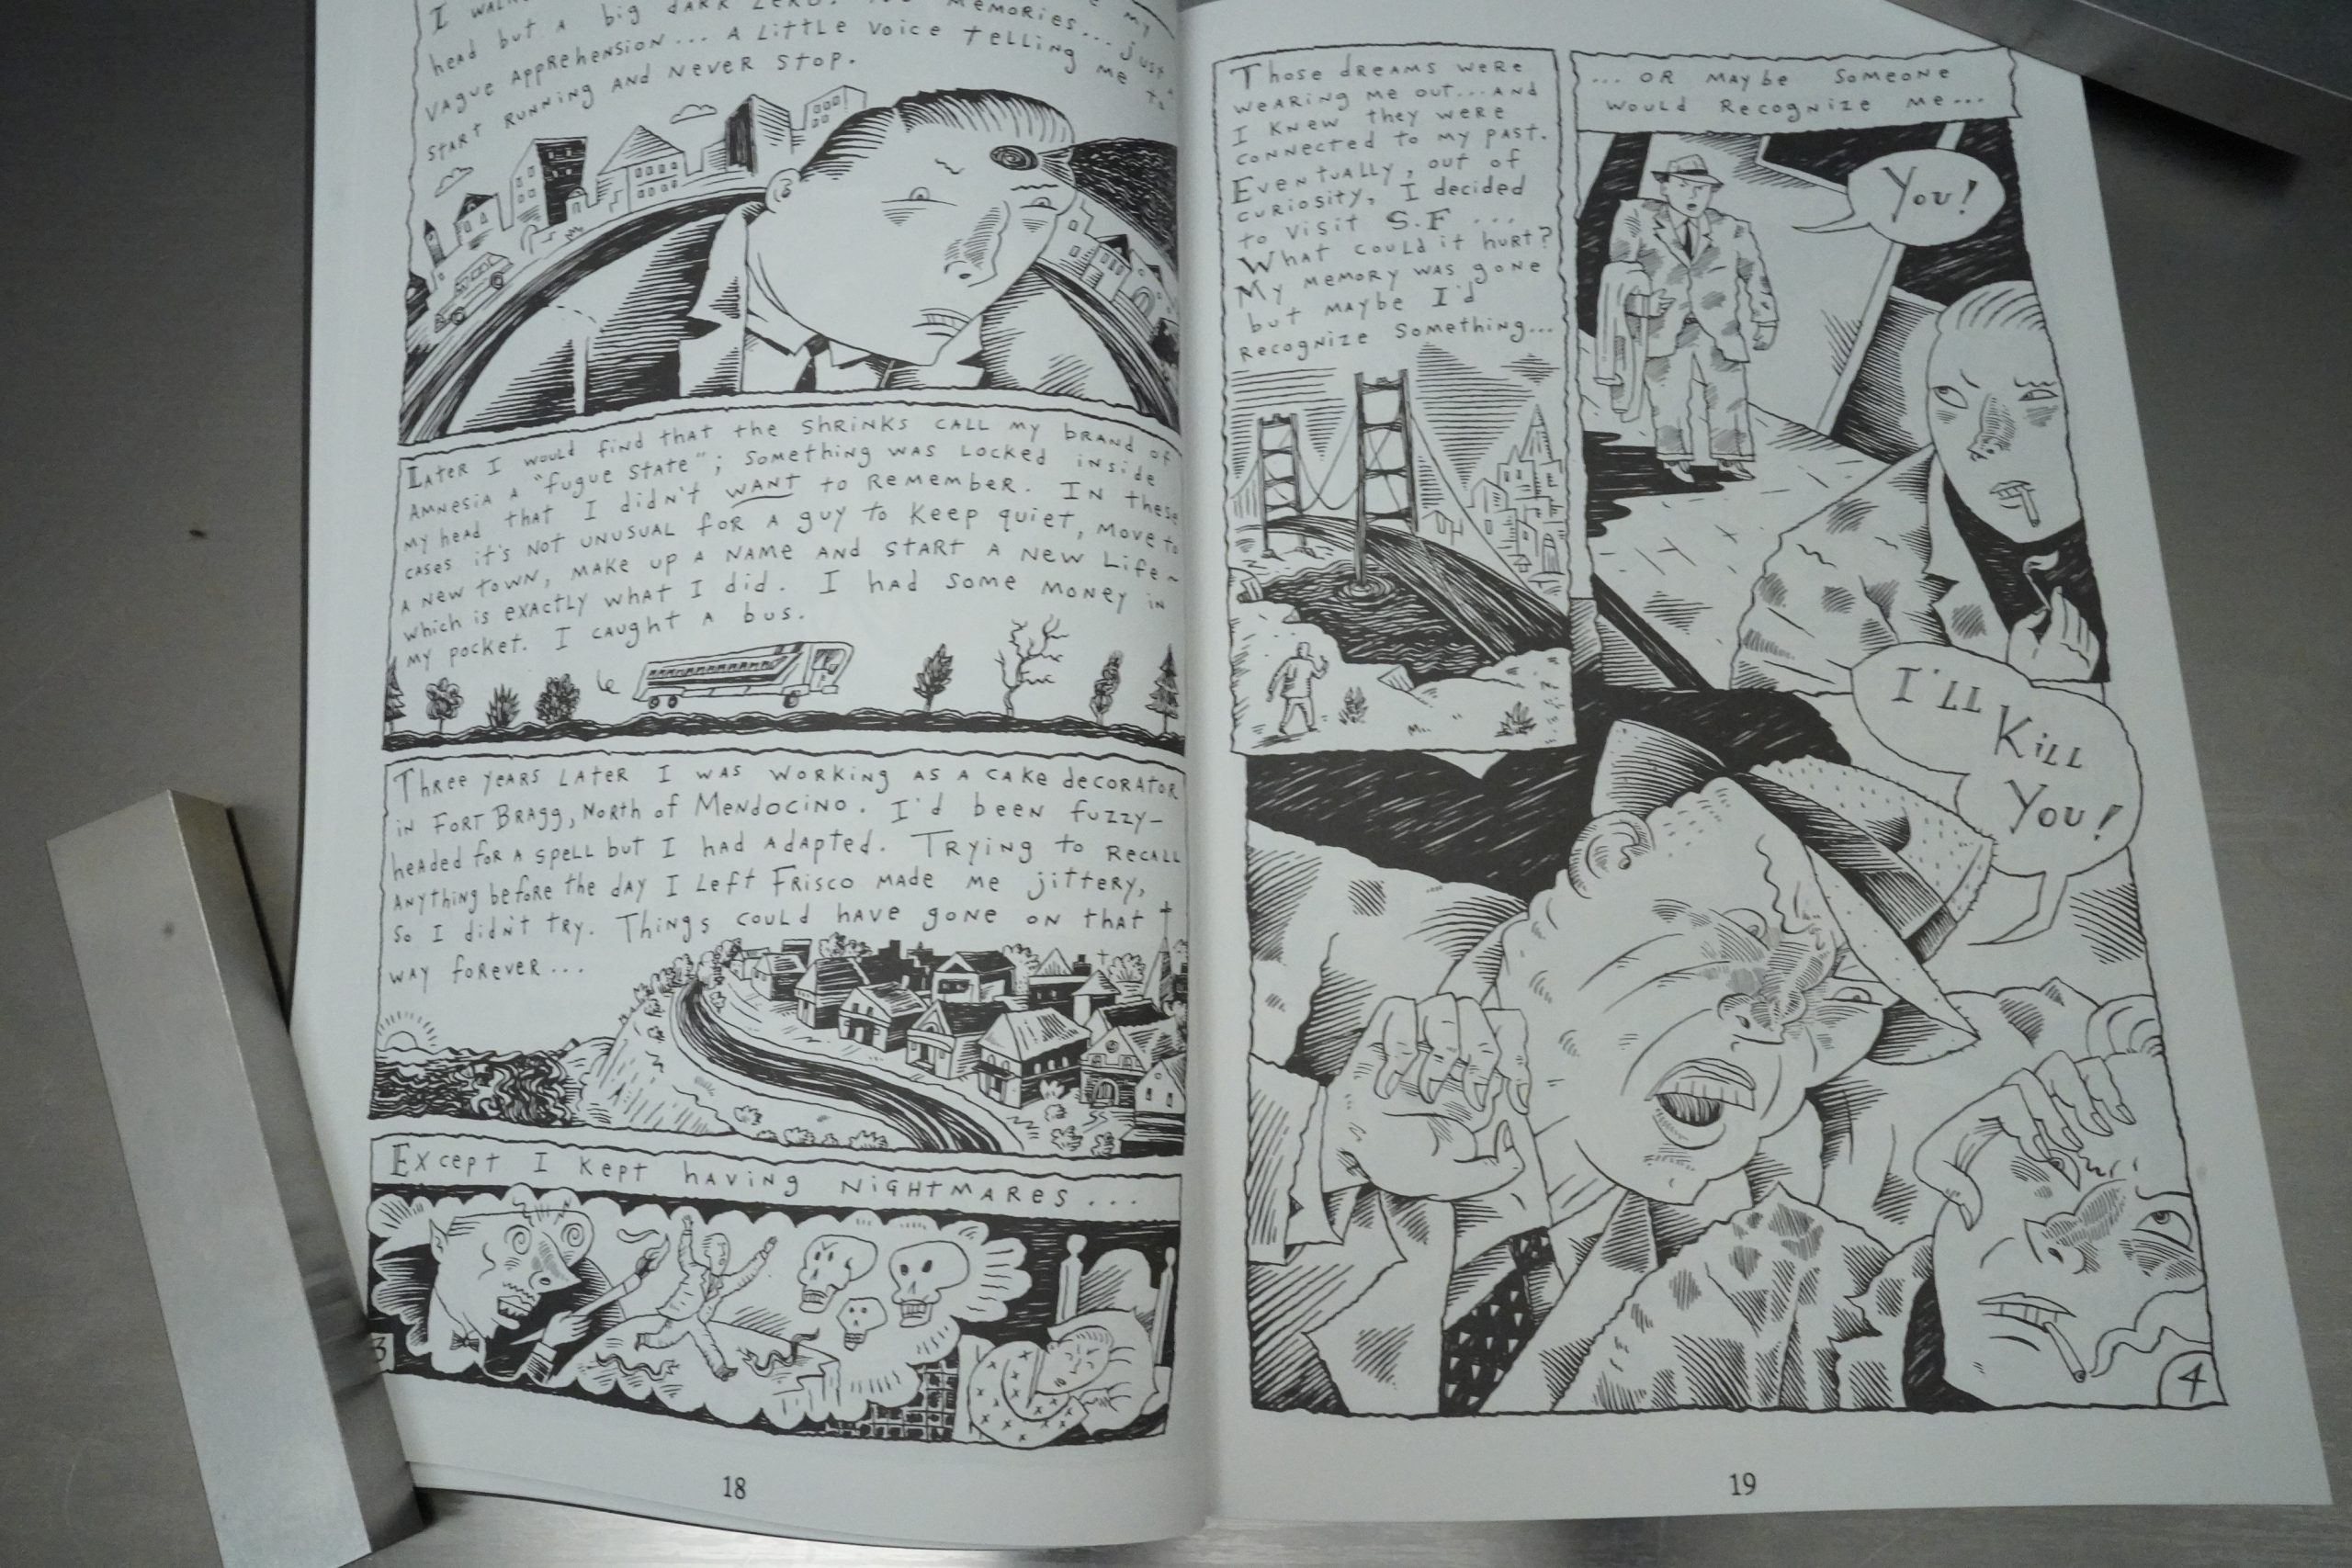 I
my
head but a big dark zero. No memories... just
vague apprehension... a little voice telling me to
start running and never stop.
Later I would find that the shrinks call my brand of
amnesia a "fugue state"; something was locked inside
my head that I didn't want to remember. In these
cases it's not unusual for a guy to keep quiet, move to
a new town, make up a name and start a new life ~
which is exactly what I did. I had some money in
my pocket. I caught a bus.
Three years later I was working as a cake decorator
in Fort Bragg, North of Mendocino. I'd been fuzzy-
headed for a spell but I had adapted. Trying to recall
anything before the day I left Frisco made me jittery,
so I didn't try. Things could have gone on that
way forever...
Except I kept having nightmares...
3
18
Those dreams were
wearing me out... and
I knew they were
connected to my past.
Eventually, out of
curiosity, I decided
to visit S.F ...
What could it hurt?
My memory was gone
but maybe I'd
recognize something...
... or maybe someone
would recognize me...
You!
I'll
Kill
You!
4
19